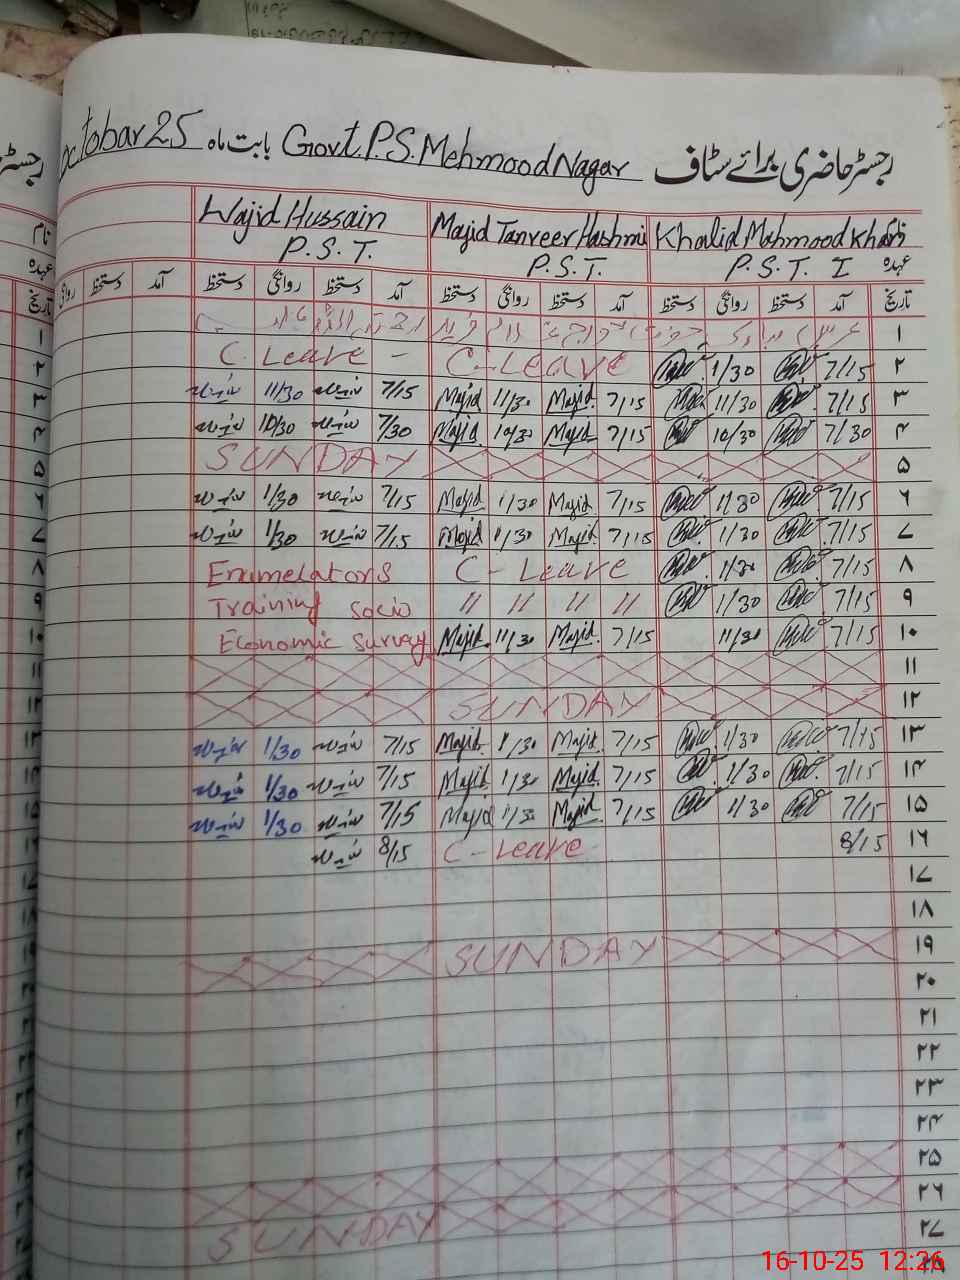 رجسٹر حاضری برائے سٹاف Govt. P.S. Mehmood Nagar بابت ماہ octobar 25
نام Khalid Mahmood Khan Majid Tanveer Hashmi Wajid Hussain
عہدہ P.S.T. I P.S.T. P.S.T.
تاریخ آمد دستخط روانگی دستخط آمد دستخط روانگی دستخط آمد دستخط روانگی دستخط آمد دستخط روانگی
۱
۲ 7/15 1/30 C-Leave C. Leave -
۳ 7/15 11/30 7/15 Majid 11/30 Majid 7/15 11/30
۴ 7/30 10/30 7/15 Majid 10/30 Majid 7/30 10/30
۵ SUNDAY
۶ 7/15 1/30 7/15 Majid 1/30 Majid 7/15 1/30
۷ 7/15 1/30 7/15 Majid 1/30 Majid 7/15 1/30
۸ 7/15 1/30 C-Leave Enumelators
۹ 7/15 1/30 〃 〃 〃 〃 Training Socio
۱۰ 7/15 11/30 7/15 Majid 11/30 Majid Economic Survay
۱۱
۱۲ SUNDAY
۱۳ 7/15 1/30 7/15 Majid 1/30 Majid 7/15 1/30
۱۴ 7/15 1/30 7/15 Majid 1/30 Majid 7/15 1/30
۱۵ 7/15 1/30 7/15 Majid 1/30 Majid 7/15 1/30
۱۶ 8/15 C-Leave 8/15
۱۷
۱۸
۱۹ SUNDAY
۲۰
۲۱
۲۲
۲۳
۲۴
۲۵
۲۶
۲۷ SUNDAY
۲۸
16-10-25 12:26